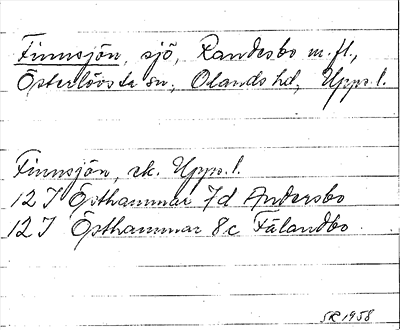 Finnsjön, sjö, Randesbo m.fl.,
Österlövsta sn, Olands hd, Upps. l.
Finnsjön, ek. Upps. l.
12 I Östhammar 7d Andersbo
12 I Östhammar 8c Fälandbo
SR 1958